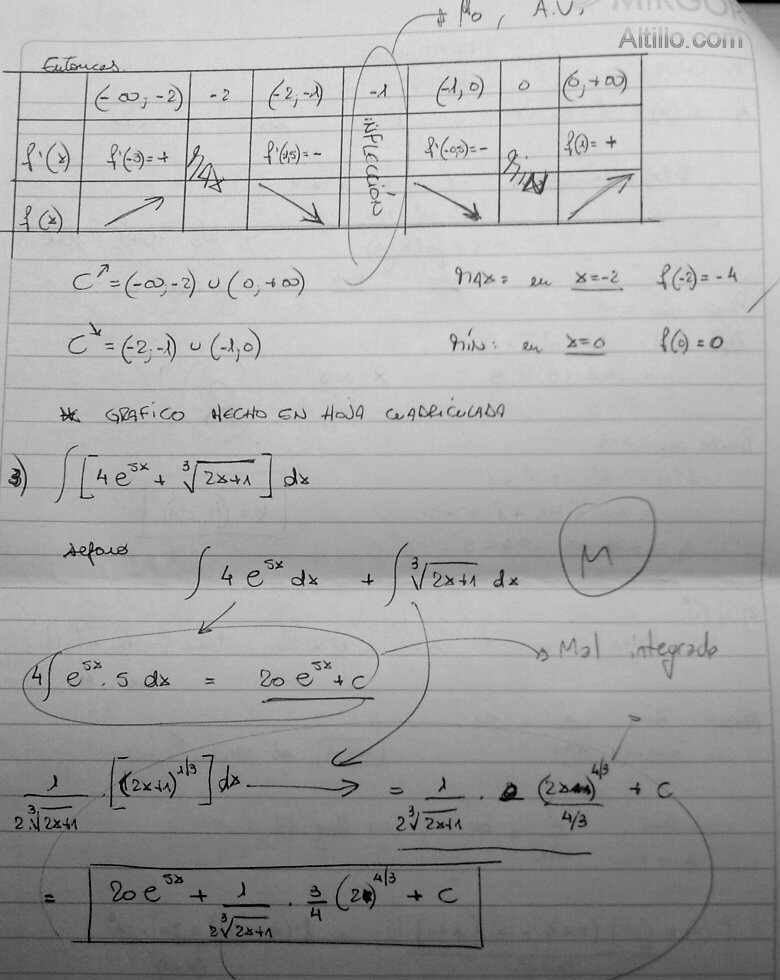 # No, A.V.
Altillo.com
Entonces
(-∞,-2) -2 (-2,-1) -1 (-1,0) 0 (0,+∞)
f'(x) f'(-3)=+ MAX f'(1,5)=- INFLECCIÓN f'(-0,5)=- MIN f(1)=+
f(x)
C↗=(-∞,-2) ∪ (0,+∞) MAX= en x=-2 f(-2)=-4
C↘=(-2,-1) ∪ (-1,0) MÍN: en x=0 f(0)=0
* GRAFICO HECHO EN HOJA CUADRICULADA
3) ∫[4e^5x + ∛(2x+1)] dx
separo
∫4e^5x dx + ∫∛(2x+1) dx
M
4∫e^5x . 5 dx = 20 e^5x + C
Mal integrado
1/(2∛(2x+1)) . [(2x+1)^1/3] dx → = 1/(2∛(2x+1)) . (2x+1)^4/3 / 4/3 + C
= 20 e^5x + 1/(2∛(2x+1)) . 3/4 (2 )^4/3 + C